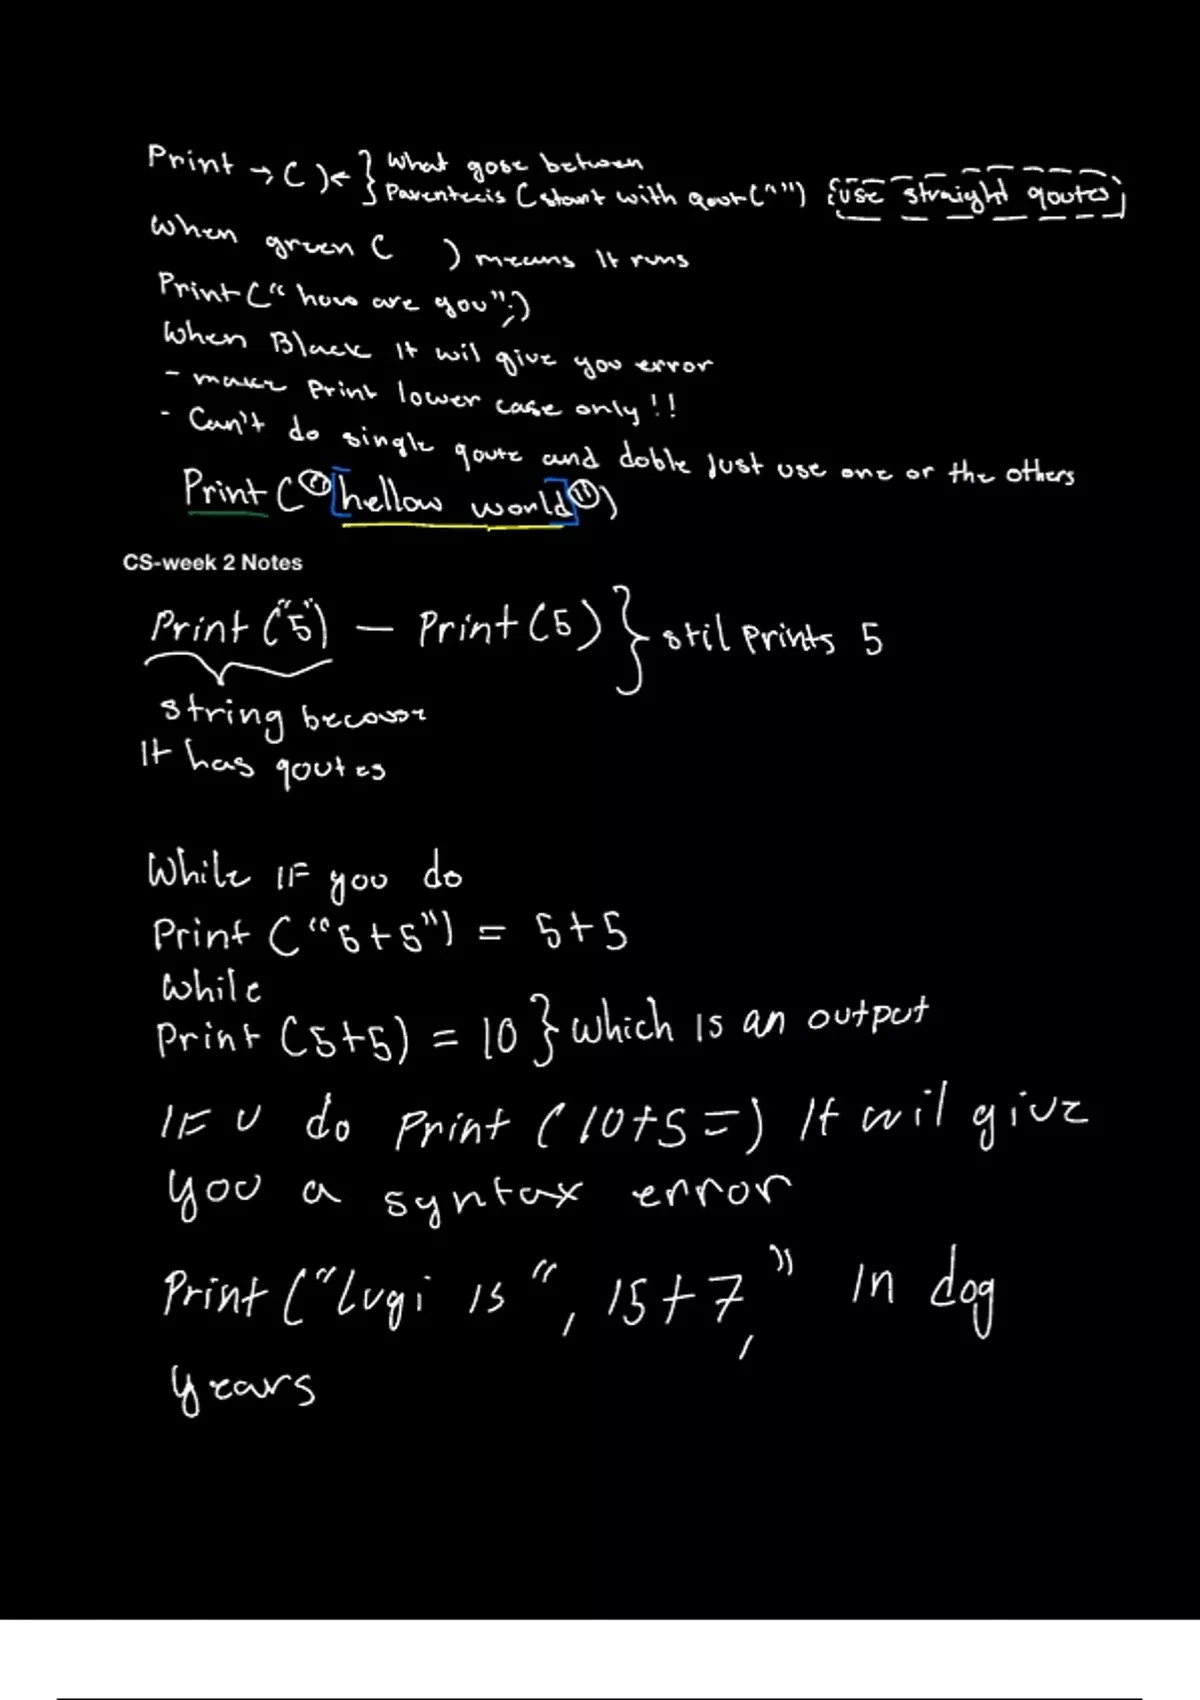 Print → ( ) ← } What gose between
Parentecis (start with qout("") use straight qoutes
When green ( ) means It runs
Print(" how are you";)
When Black It wil give you error
- make Print lower case only!!
- Can't do single qoute and doble Just use one or the others
Print("hellow world")
CS-week 2 Notes
Print("5") - Print(5) } stil Prints 5
string because
It has qoutes
While IF you do
Print ("5+5") = 5+5
While
Print (5+5) = 10 } which is an output
IF U do Print (10+5=) It wil give
you a syntax error
Print ("Lugi is ", 15+7, " In dog
years